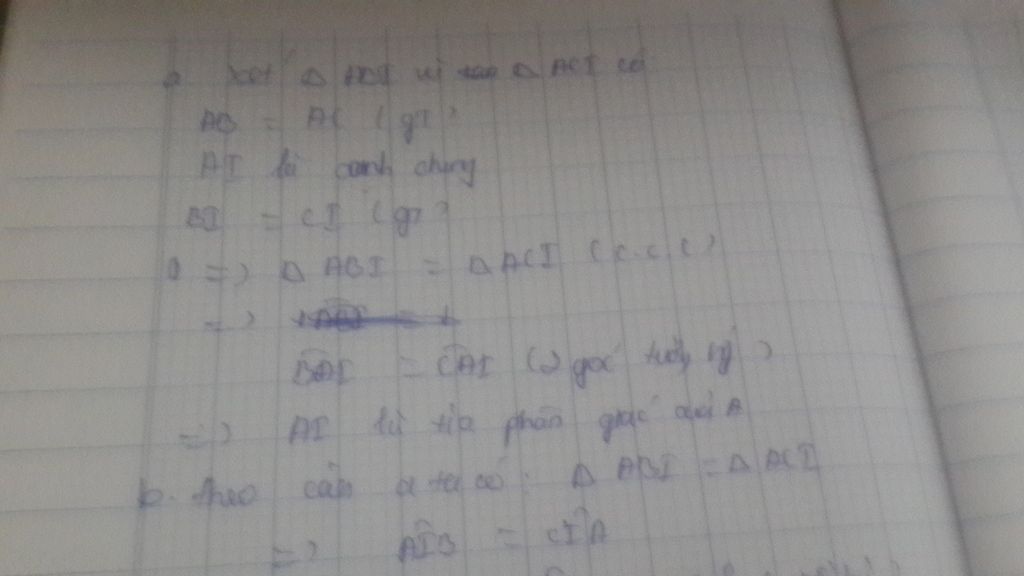 a Xét Δ ABI và Δ ACI có
AB = AC (gt)
AI là cạnh chung
BI = CI (gt)
=> Δ ABI = Δ ACI (c.c.c)
=>
BAI = CAI (2 góc tương ứng)
=> AI là tia phân giác góc A
b. theo câu a ta có: Δ ABI = Δ ACI
=> AIB = CIA